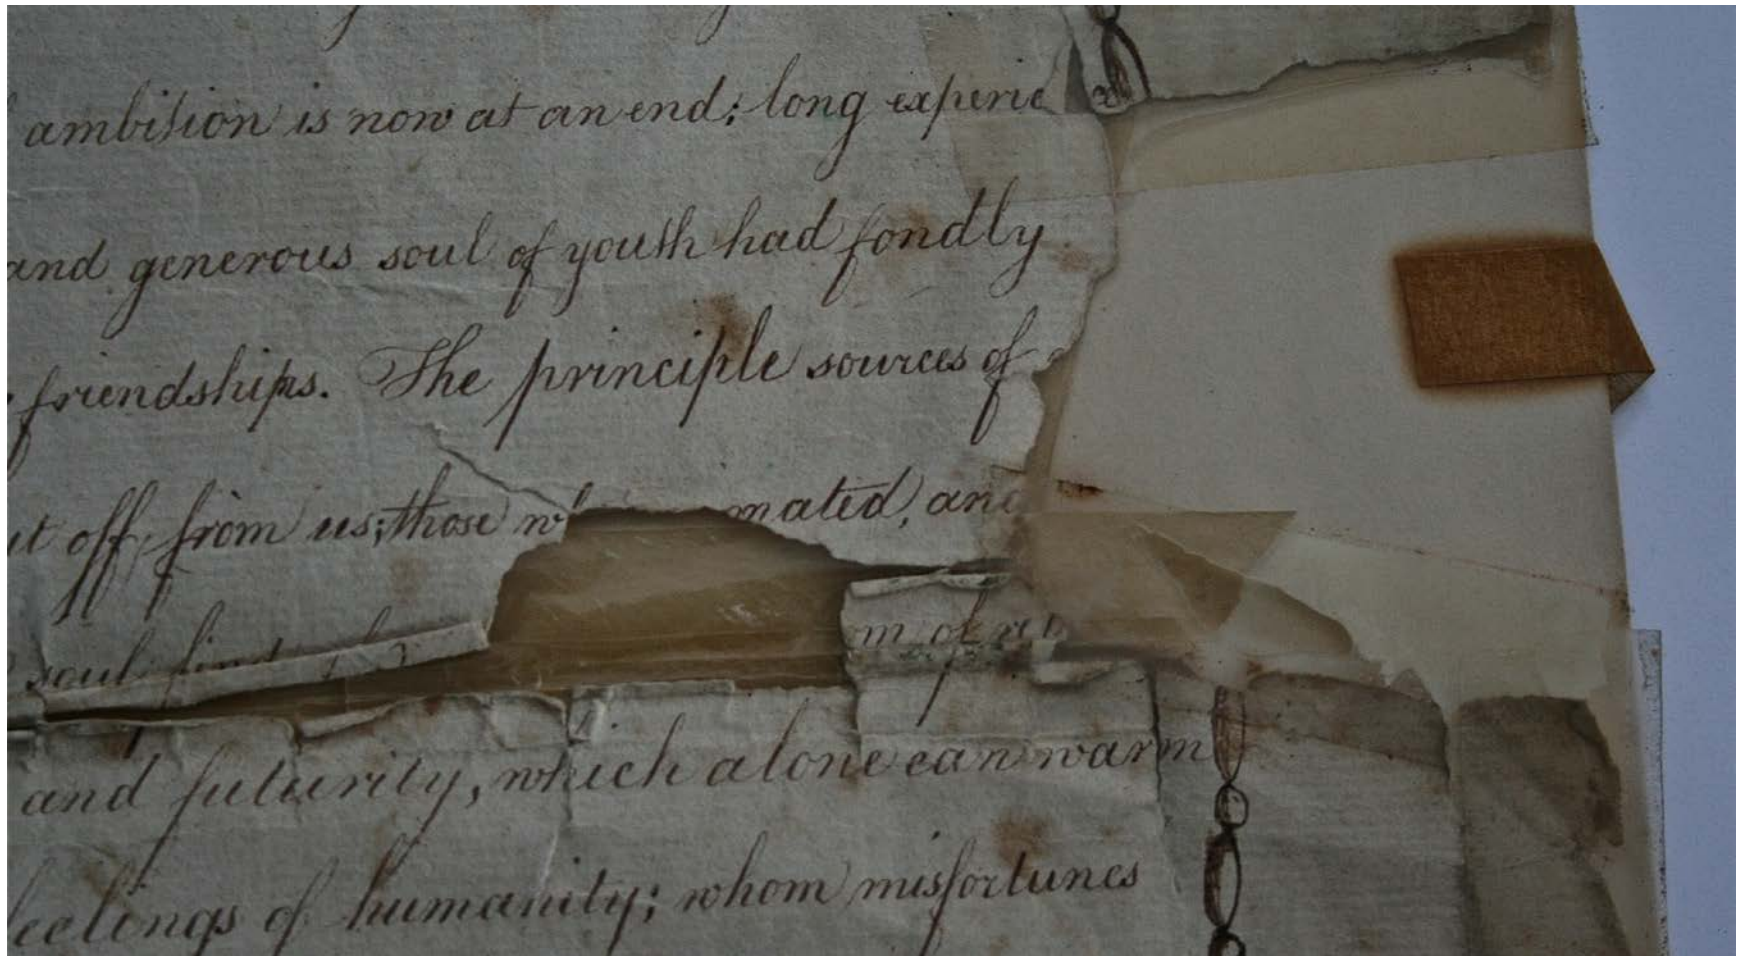 ambition is now at an end; long experie
and generous soul of youth had fondly
friendships. The principle sources of
off, from us; those mated, and
soul find m of
and futurity, which alone can warm
feelings of humanity; whom misfortunes